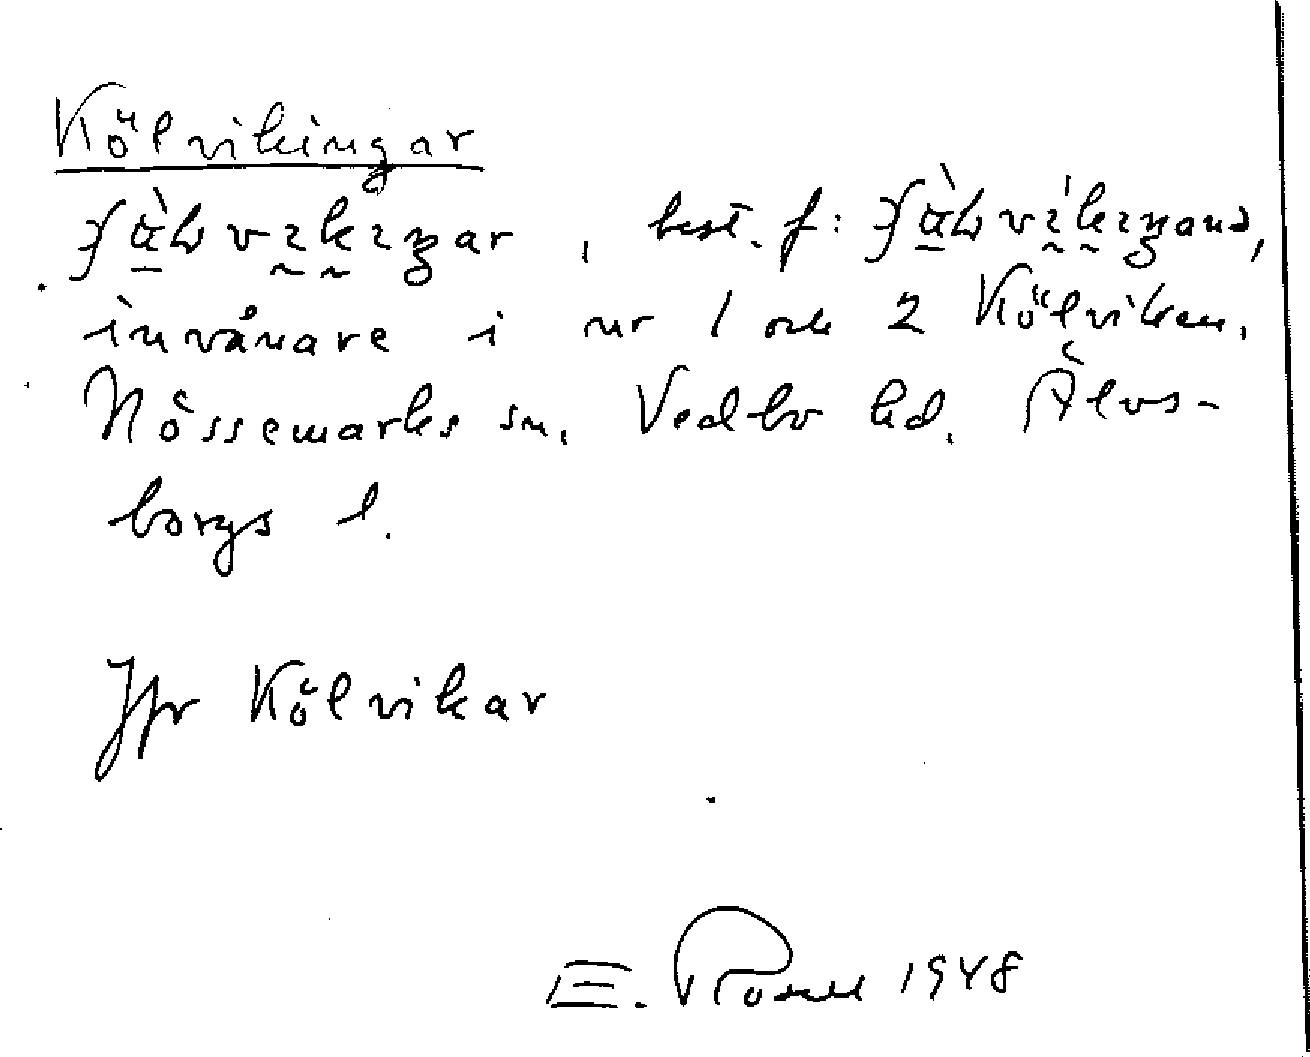 Kölvikingar
, best. f:
invånare i nr 1 och 2 Kölviken,
Nössemarks sn, Vedbo hd, Älvs-
borgs l.
Jfr Kölvikar
E. Rosell 1948